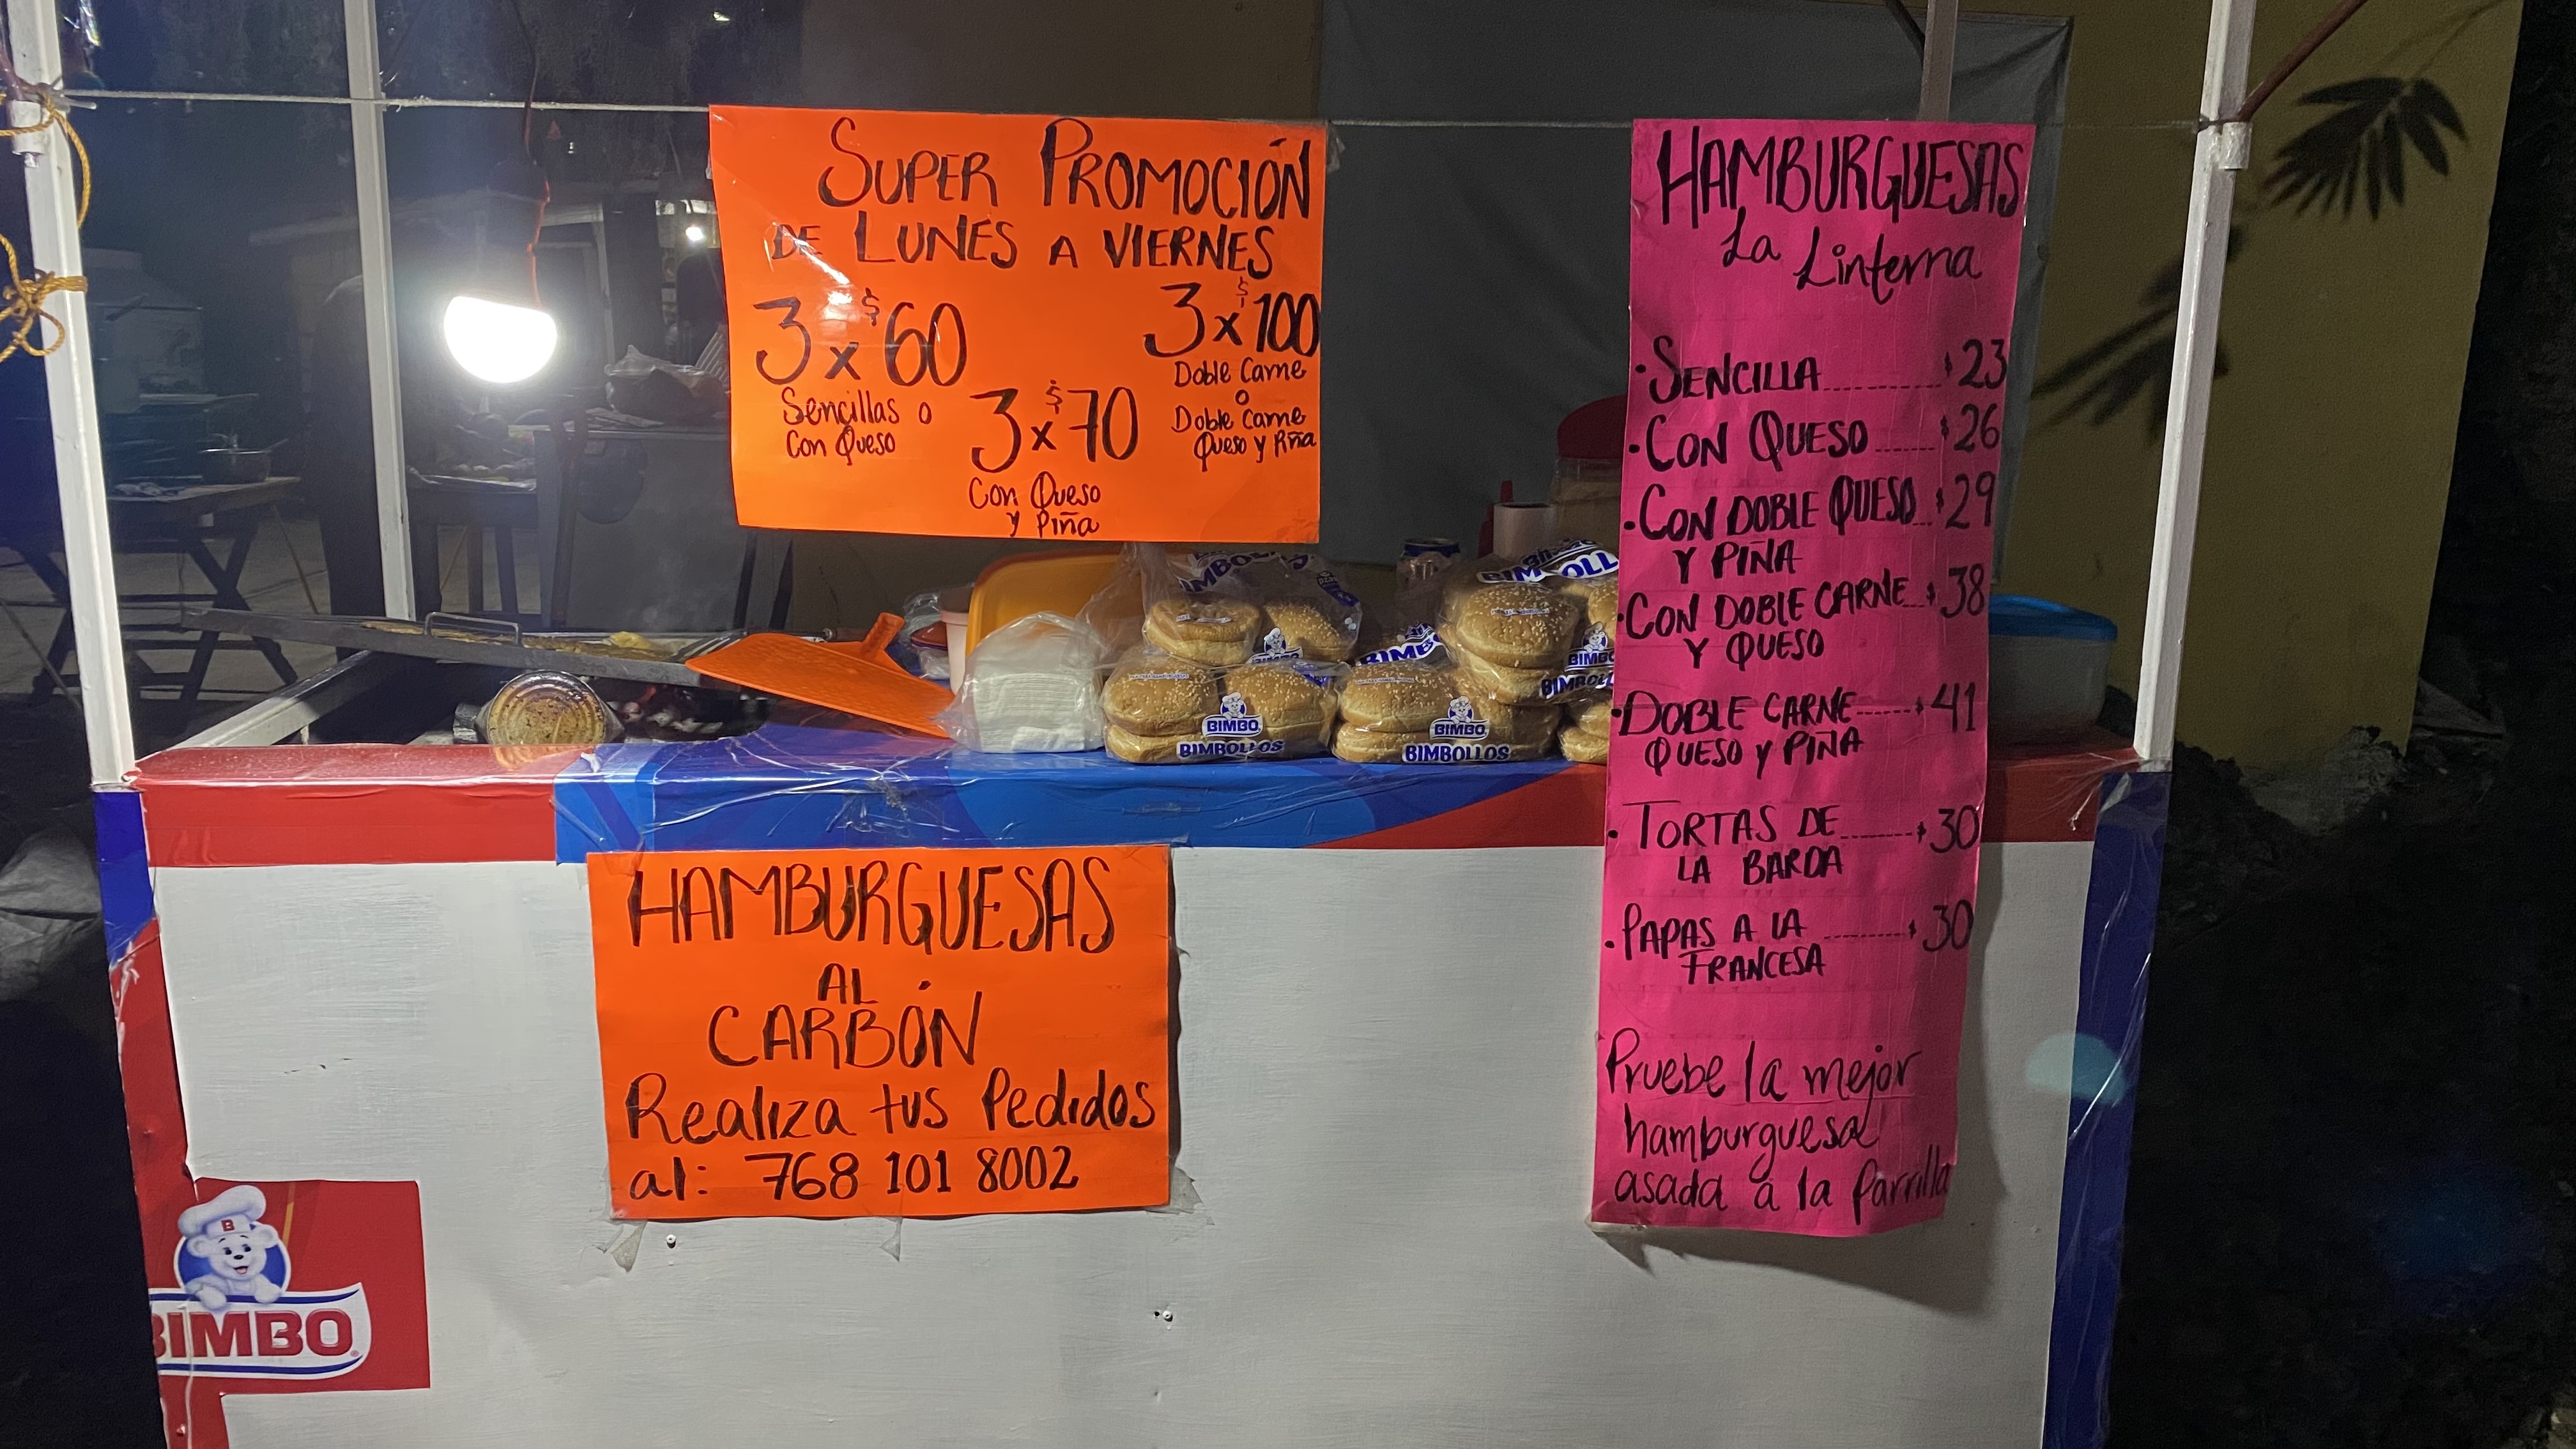 SUPER PROMOCIÓN
DE LUNES A VIERNES
3 x $60
Sencillas o
Con Queso
3 x $70
Con Queso
y Piña
3 x $100
Doble Carne
o
Doble Carne
Queso y Piña
HAMBURGUESAS
La Linterna
• SENCILLA ---------- $23
• CON QUESO ------ $26
• CON DOBLE QUESO -- $29
Y PIÑA
• CON DOBLE CARNE -- $38
Y QUESO
• DOBLE CARNE ------ $41
QUESO Y PIÑA
• TORTAS DE -------- $30
LA BARDA
• PAPAS A LA --------- $30
FRANCESA
Pruebe la mejor
hamburguesa
asada a la Parrilla
BIMBO
BIMBOLLOS
BIMBO
BIMBOLLOS
HAMBURGUESAS
AL
CARBÓN
Realiza tus Pedidos
al: 768 101 8002
B
BIMBO